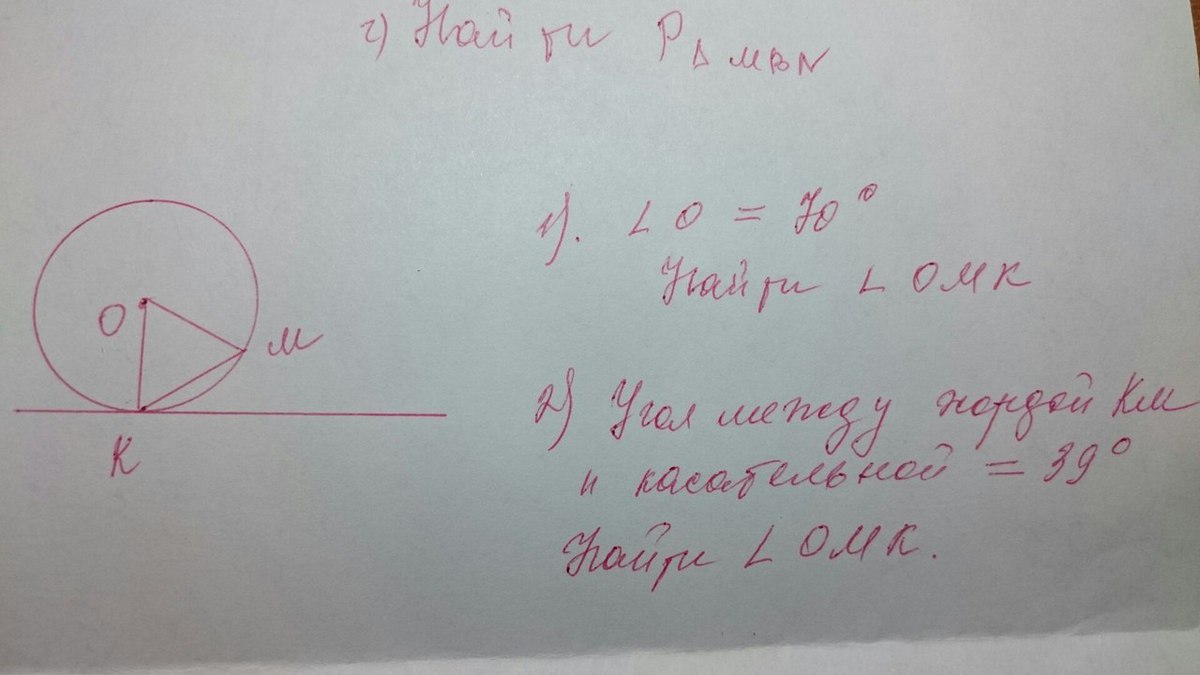 г) Найти P Δ MBN
1). ∠ O = 70°
Найти ∠ OMK
O
M
K
2) Угол между хордой KM
и касательной = 39°
Найти ∠ OMK.